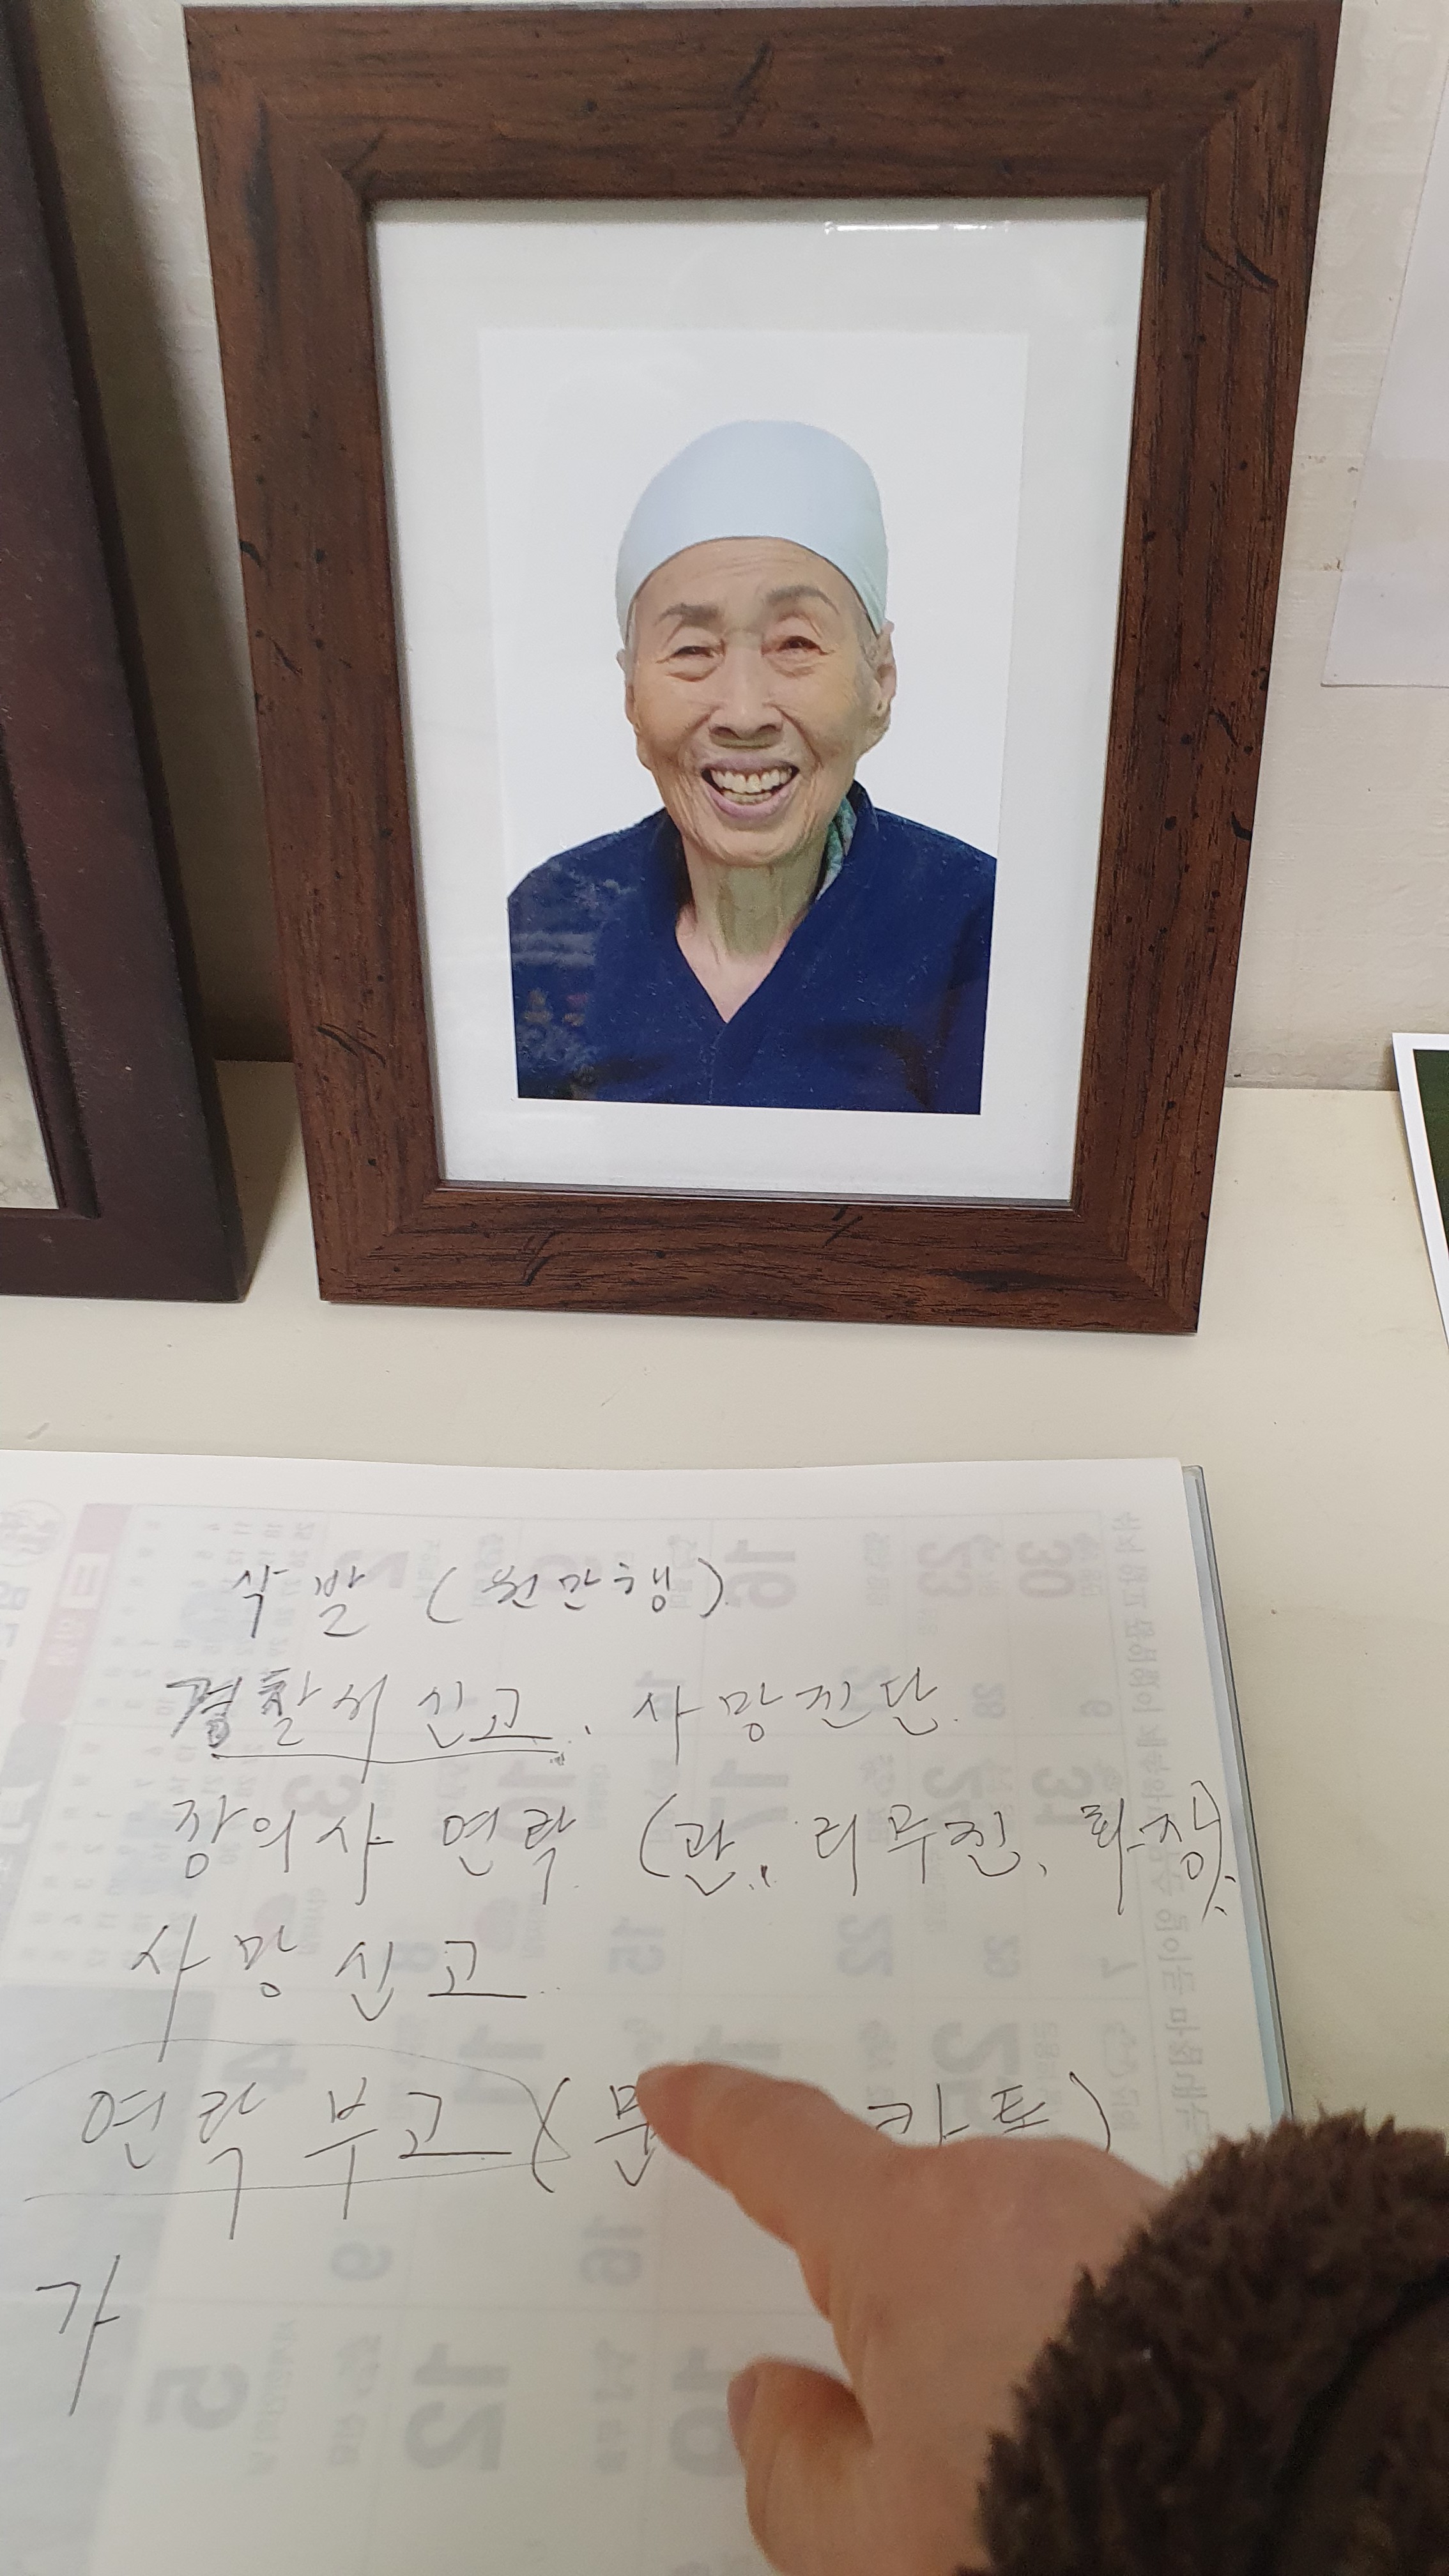 삭발 (원만행)
경찰서 신고, 사망진단.
장의사 연락 (관, 리무진, 화장),
사망 신고.
연락 부고 ( 카톡)
가